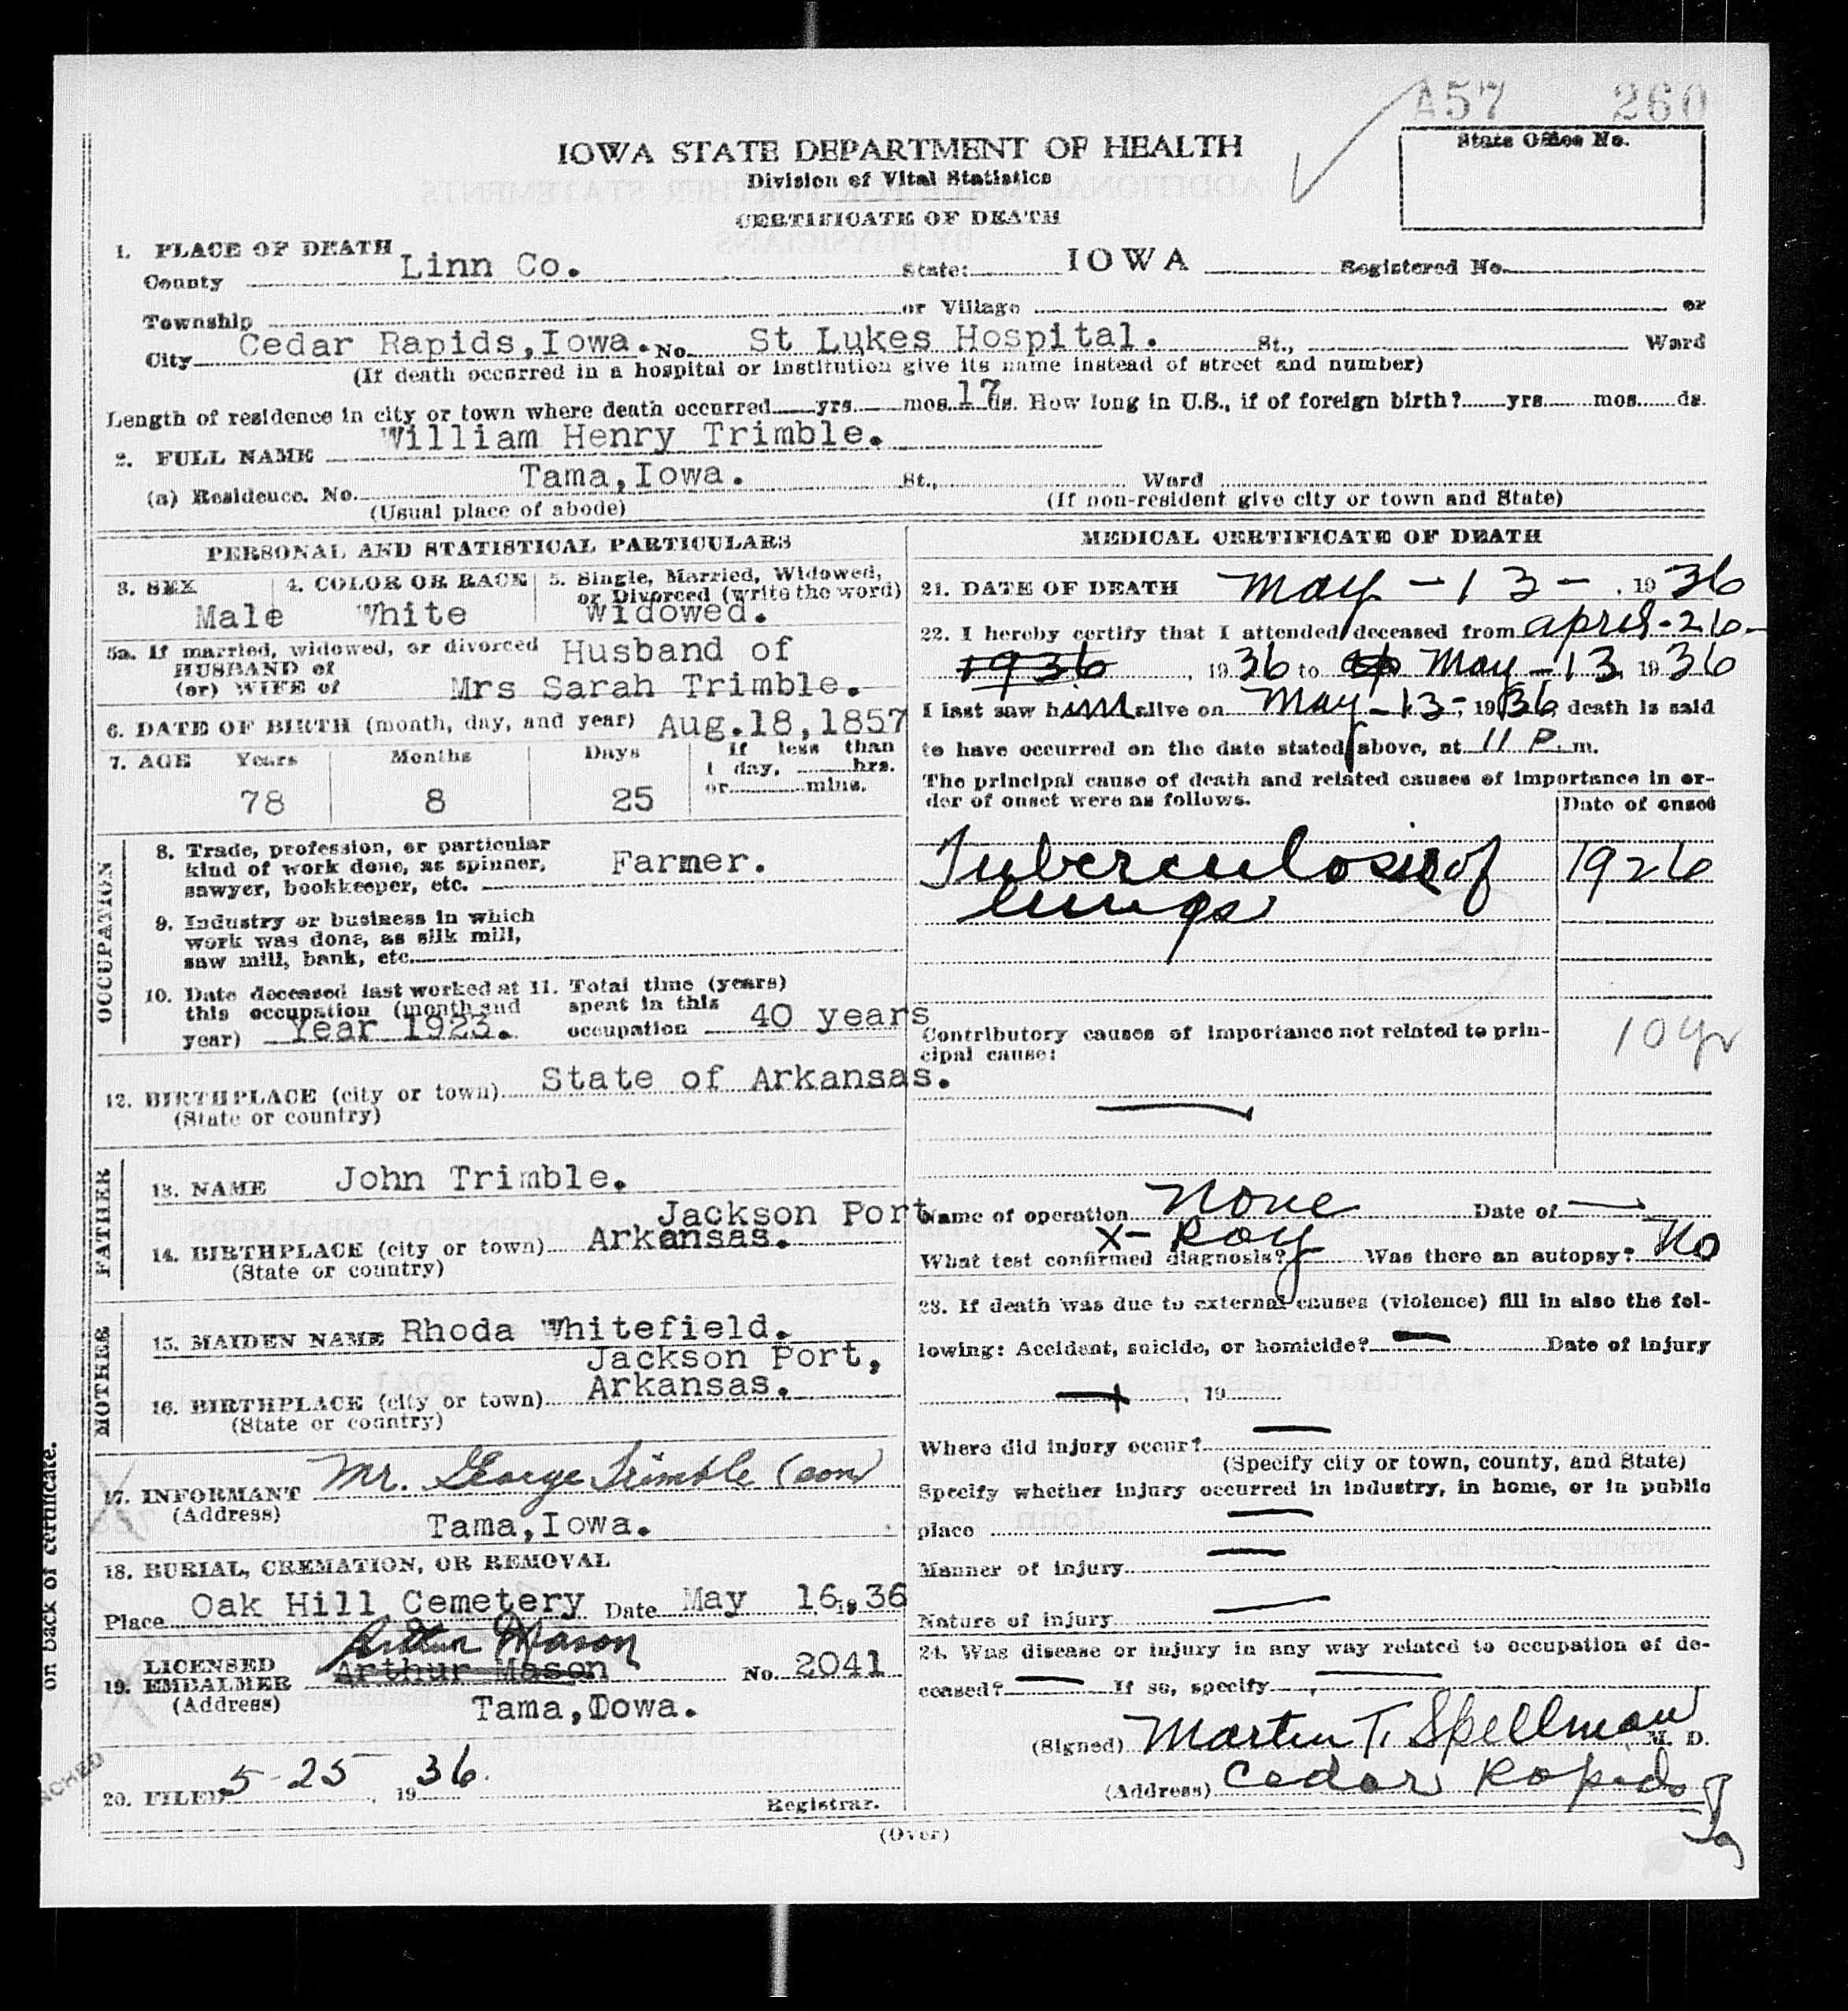 A57 260
State Office No.
IOWA STATE DEPARTMENT OF HEALTH
Division of Vital Statistics
CERTIFICATE OF DEATH
1. PLACE OF DEATH
County Linn Co. State: IOWA Registered No.
Township or Village or
City Cedar Rapids,Iowa. No. St Lukes Hospital. St., Ward
(If death occurred in a hospital or institution give its name instead of street and number)
Length of residence in city or town where death occurred yrs. mos. 17 ds. How long in U.S., if of foreign birth? yrs. mos. ds.
2. FULL NAME William Henry Trimble.
(a) Residence. No. Tama,Iowa. St., Ward
(Usual place of abode) (If non-resident give city or town and State)
PERSONAL AND STATISTICAL PARTICULARS
3. SEX 4. COLOR OR RACE 5. Single, Married, Widowed,
or Divorced (write the word)
Male White Widowed.
5a. If married, widowed, or divorced Husband of
HUSBAND of
(or) WIFE of Mrs Sarah Trimble.
6. DATE OF BIRTH (month, day, and year) Aug.18,1857
7. AGE Years Months Days If less than
1 day, hrs.
or mins.
78 8 25
OCCUPATION
8. Trade, profession, or particular
kind of work done, as spinner, Farmer.
sawyer, bookkeeper, etc.
9. Industry or business in which
work was done, as silk mill,
saw mill, bank, etc.
10. Date deceased last worked at 11. Total time (years)
this occupation (month and spent in this
year) Year 1923. occupation 40 years
12. BIRTHPLACE (city or town) State of Arkansas.
(State or country)
FATHER
13. NAME John Trimble.
Jackson Port
14. BIRTHPLACE (city or town) Arkansas.
(State or country)
MOTHER
15. MAIDEN NAME Rhoda Whitefield.
Jackson Port,
16. BIRTHPLACE (city or town) Arkansas.
(State or country)
17. INFORMANT Mr. George Trimble (son)
(Address) Tama,Iowa.
18. BURIAL, CREMATION, OR REMOVAL
Place Oak Hill Cemetery Date May 16, 19 36
Arthur Mason
19. LICENSED EMBALMER Arthur Mason No. 2041
(Address) Tama,Iowa.
20. FILED 5-25 , 19 36.
Registrar.
MEDICAL CERTIFICATE OF DEATH
21. DATE OF DEATH May - 13 - , 19 36
22. I hereby certify that I attended deceased from April - 26 -
1936 , 19 36 to May - 13 19 36
I last saw him alive on May - 13 -, 19 36, death is said
to have occurred on the date stated above, at 11 P. m.
The principal cause of death and related causes of importance in or-
der of onset were as follows. Date of onset
Tuberculosis of 1926
lungs
Contributory causes of importance not related to prin- 10 yr
cipal cause:
Name of operation None Date of
What test confirmed diagnosis? X-Ray Was there an autopsy? No
23. If death was due to external causes (violence) fill in also the fol-
lowing: Accident, suicide, or homicide? Date of injury
, 19
Where did injury occur?
(Specify city or town, county, and State)
Specify whether injury occurred in industry, in home, or in public
place
Manner of injury
Nature of injury
24. Was disease or injury in any way related to occupation of de-
ceased? If so, specify
(Signed) Martin T. Spellman M. D.
(Address) Cedar Rapids
Ia
(Over)
on back of certificate.